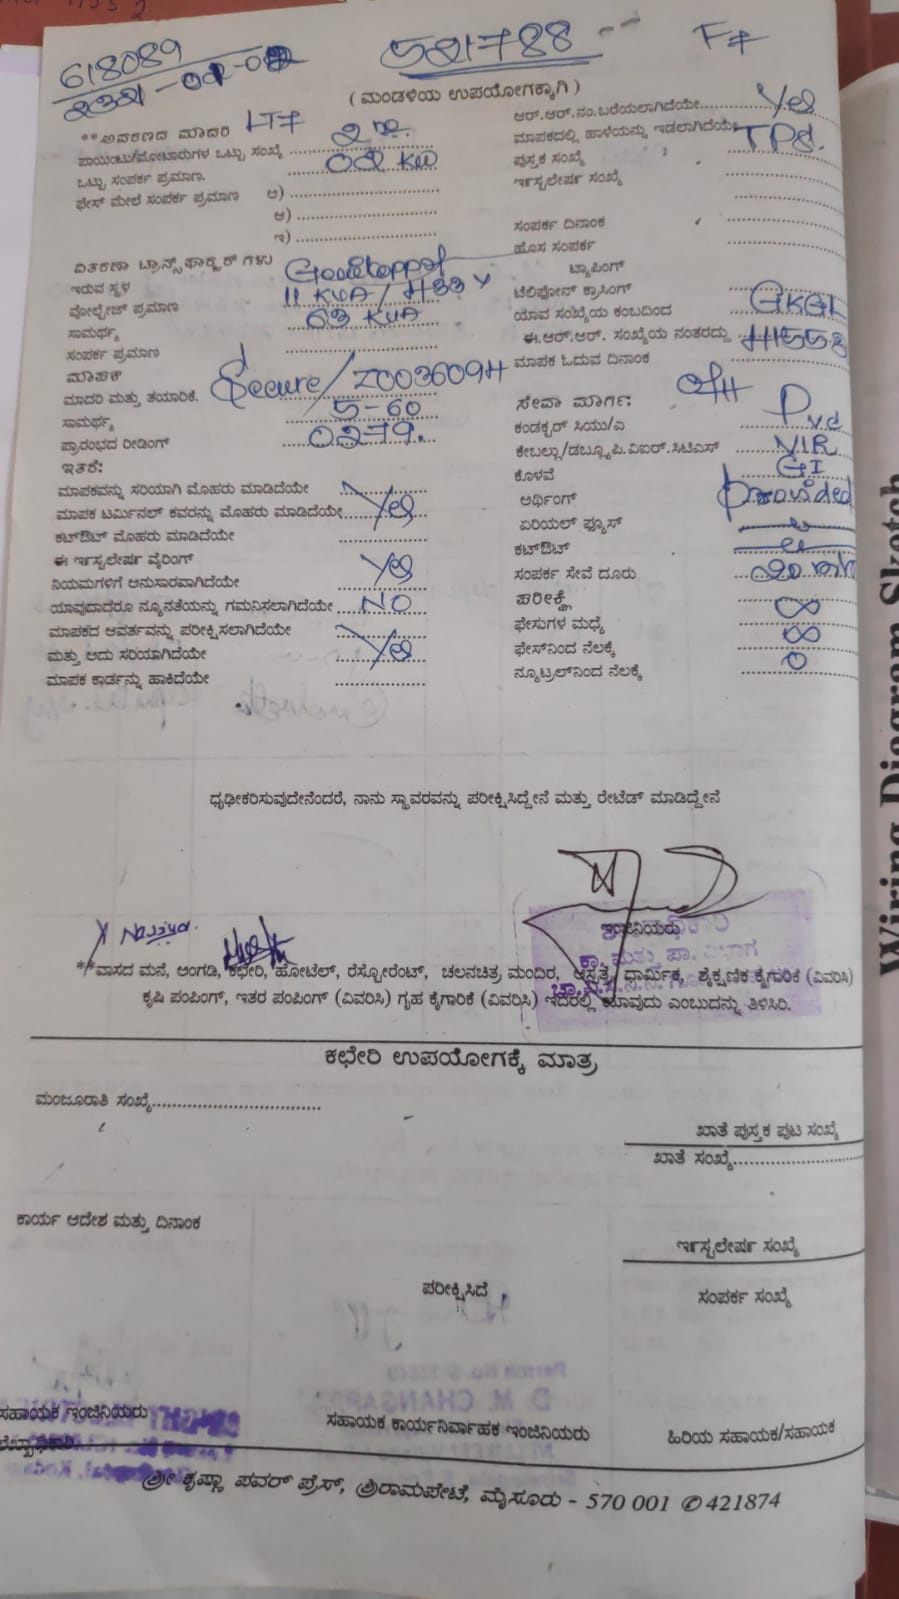 618089
521788
F7
( ಮಂಡಳಿಯ ಉಪಯೋಗಕ್ಕಾಗಿ )
**ಆವರಣದ ಮಾದರಿ LT7
ಪಾಯಿಂಟು/ಮೋಟಾರುಗಳ ಒಟ್ಟು ಸಂಖ್ಯೆ 2 no.
ಒಟ್ಟು ಸಂಪರ್ಕ ಪ್ರಮಾಣ. 02 KW
ಫೇಸ್ ಮೇಲೆ ಸಂಪರ್ಕ ಪ್ರಮಾಣ ಅ)
ಆ)
ಇ)
ವಿತರಣಾ ಟ್ರಾನ್ಸ್‌ಫಾರ್ಮರ್ ಗಳು
ಇರುವ ಸ್ಥಳ
ವೋಲ್ಟೇಜ್ ಪ್ರಮಾಣ 11 KVA / 433 V
ಸಾಮರ್ಥ್ಯ 63 KVA
ಸಂಪರ್ಕ ಪ್ರಮಾಣ
ಮಾಪಕ
ಮಾದರಿ ಮತ್ತು ತಯಾರಿಕೆ. Secure / Z003609H
ಸಾಮರ್ಥ್ಯ 5-60
ಪ್ರಾರಂಭದ ರೀಡಿಂಗ್ 0279.
ಇತರೆ:
ಮಾಪಕವನ್ನು ಸರಿಯಾಗಿ ಮೊಹರು ಮಾಡಿದೆಯೇ
ಮಾಪಕ ಟರ್ಮಿನಲ್ ಕವರನ್ನು ಮೊಹರು ಮಾಡಿದೆಯೇ Yes
ಕಟ್‌ಔಟ್ ಮೊಹರು ಮಾಡಿದೆಯೇ
ಈ ಇನ್ಸ್ಟಲೇಷನ್ ವೈರಿಂಗ್
ನಿಯಮಗಳಿಗೆ ಅನುಸಾರವಾಗಿದೆಯೇ Yes
ಯಾವುದಾದರೂ ನ್ಯೂನತೆಯನ್ನು ಗಮನಿಸಲಾಗಿದೆಯೇ NO
ಮಾಪಕದ ಆವರ್ತವನ್ನು ಪರೀಕ್ಷಿಸಲಾಗಿದೆಯೇ
ಮತ್ತು ಅದು ಸರಿಯಾಗಿದೆಯೇ Yes
ಮಾಪಕ ಕಾರ್ಡನ್ನು ಹಾಕಿದೆಯೇ
ಆರ್.ಆರ್.ನಂ.ಬರೆಯಲಾಗಿದೆಯೇ Yes
ಮಾಪಕದಲ್ಲಿ ಹಾಳೆಯನ್ನು ಇಡಲಾಗಿದೆಯೇ
ಪುಸ್ತಕ ಸಂಖ್ಯೆ
ಇನ್ಸ್ಟಲೇಷನ್ ಸಂಖ್ಯೆ
ಸಂಪರ್ಕ ದಿನಾಂಕ
ಹೊಸ ಸಂಪರ್ಕ
ಟ್ಯಾಪಿಂಗ್
ಟೆಲಿಫೋನ್ ಕ್ರಾಸಿಂಗ್
ಯಾವ ಸಂಖ್ಯೆಯ ಕಂಬದಿಂದ
ಈ.ಆರ್.ಆರ್. ಸಂಖ್ಯೆಯ ನಂತರದ್ದು
ಮಾಪಕ ಓದುವ ದಿನಾಂಕ
ಸೇವಾ ಮಾರ್ಗ: OH
ಕಂಡಕ್ಟರ್ ಸಿಯು/ಎ Pvc
ಕೇಬಲ್ಲು/ಡಬ್ಲ್ಯೂ.ಪಿ.ವಿಐಆರ್.ಸಿಟಿಎಸ್ VIR
ಕೊಳವೆ GI
ಅರ್ಥಿಂಗ್ Provided
ಏರಿಯಲ್ ಫ್ಯೂಸ್
ಕಟ್‌ಔಟ್
ಸಂಪರ್ಕ ಸೇವೆ ದೂರು
ಪರೀಕ್ಷೆ
ಫೇಸುಗಳ ಮಧ್ಯೆ ∞
ಫೇಸ್‌ನಿಂದ ನೆಲಕ್ಕೆ ∞
ನ್ಯೂಟ್ರಲ್‌ನಿಂದ ನೆಲಕ್ಕೆ 0
ಧೃಢೀಕರಿಸುವುದೇನೆಂದರೆ, ನಾನು ಸ್ಥಾವರವನ್ನು ಪರೀಕ್ಷಿಸಿದ್ದೇನೆ ಮತ್ತು ರೇಟೆಡ್ ಮಾಡಿದ್ದೇನೆ
ಇಂಜಿನಿಯರು
**ವಾಸದ ಮನೆ, ಅಂಗಡಿ, ಕಛೇರಿ, ಹೋಟೆಲ್, ರೆಸ್ಟೋರೆಂಟ್, ಚಲನಚಿತ್ರ ಮಂದಿರ, ಆಸ್ಪತ್ರೆ, ಧಾರ್ಮಿಕ, ಶೈಕ್ಷಣಿಕ ಕೈಗಾರಿಕೆ (ವಿವರಿಸಿ)
ಕೃಷಿ ಪಂಪಿಂಗ್, ಇತರ ಪಂಪಿಂಗ್ (ವಿವರಿಸಿ) ಗೃಹ ಕೈಗಾರಿಕೆ (ವಿವರಿಸಿ) ಇದರಲ್ಲಿ ಯಾವುದು ಎಂಬುದನ್ನು ತಿಳಿಸಿರಿ.
ಕಛೇರಿ ಉಪಯೋಗಕ್ಕೆ ಮಾತ್ರ
ಮಂಜೂರಾತಿ ಸಂಖ್ಯೆ
ಖಾತೆ ಪುಸ್ತಕ ಪುಟ ಸಂಖ್ಯೆ
ಖಾತೆ ಸಂಖ್ಯೆ
ಕಾರ್ಯ ಆದೇಶ ಮತ್ತು ದಿನಾಂಕ
ಇನ್ಸ್ಟಲೇಷನ್ ಸಂಖ್ಯೆ
ಪರೀಕ್ಷಿಸಿದೆ
ಸಂಪರ್ಕ ಸಂಖ್ಯೆ
ಸಹಾಯಕ ಇಂಜಿನಿಯರು
ಸಹಾಯಕ ಕಾರ್ಯನಿರ್ವಾಹಕ ಇಂಜಿನಿಯರು
ಹಿರಿಯ ಸಹಾಯಕ/ಸಹಾಯಕ
ಶ್ರೀ ಕೃಷ್ಣಾ ಪವರ್ ಪ್ರೆಸ್, ಶ್ರೀರಾಮಪೇಟೆ, ಮೈಸೂರು - 570 001 ✆ 421874
Wiring Diagram Sketch